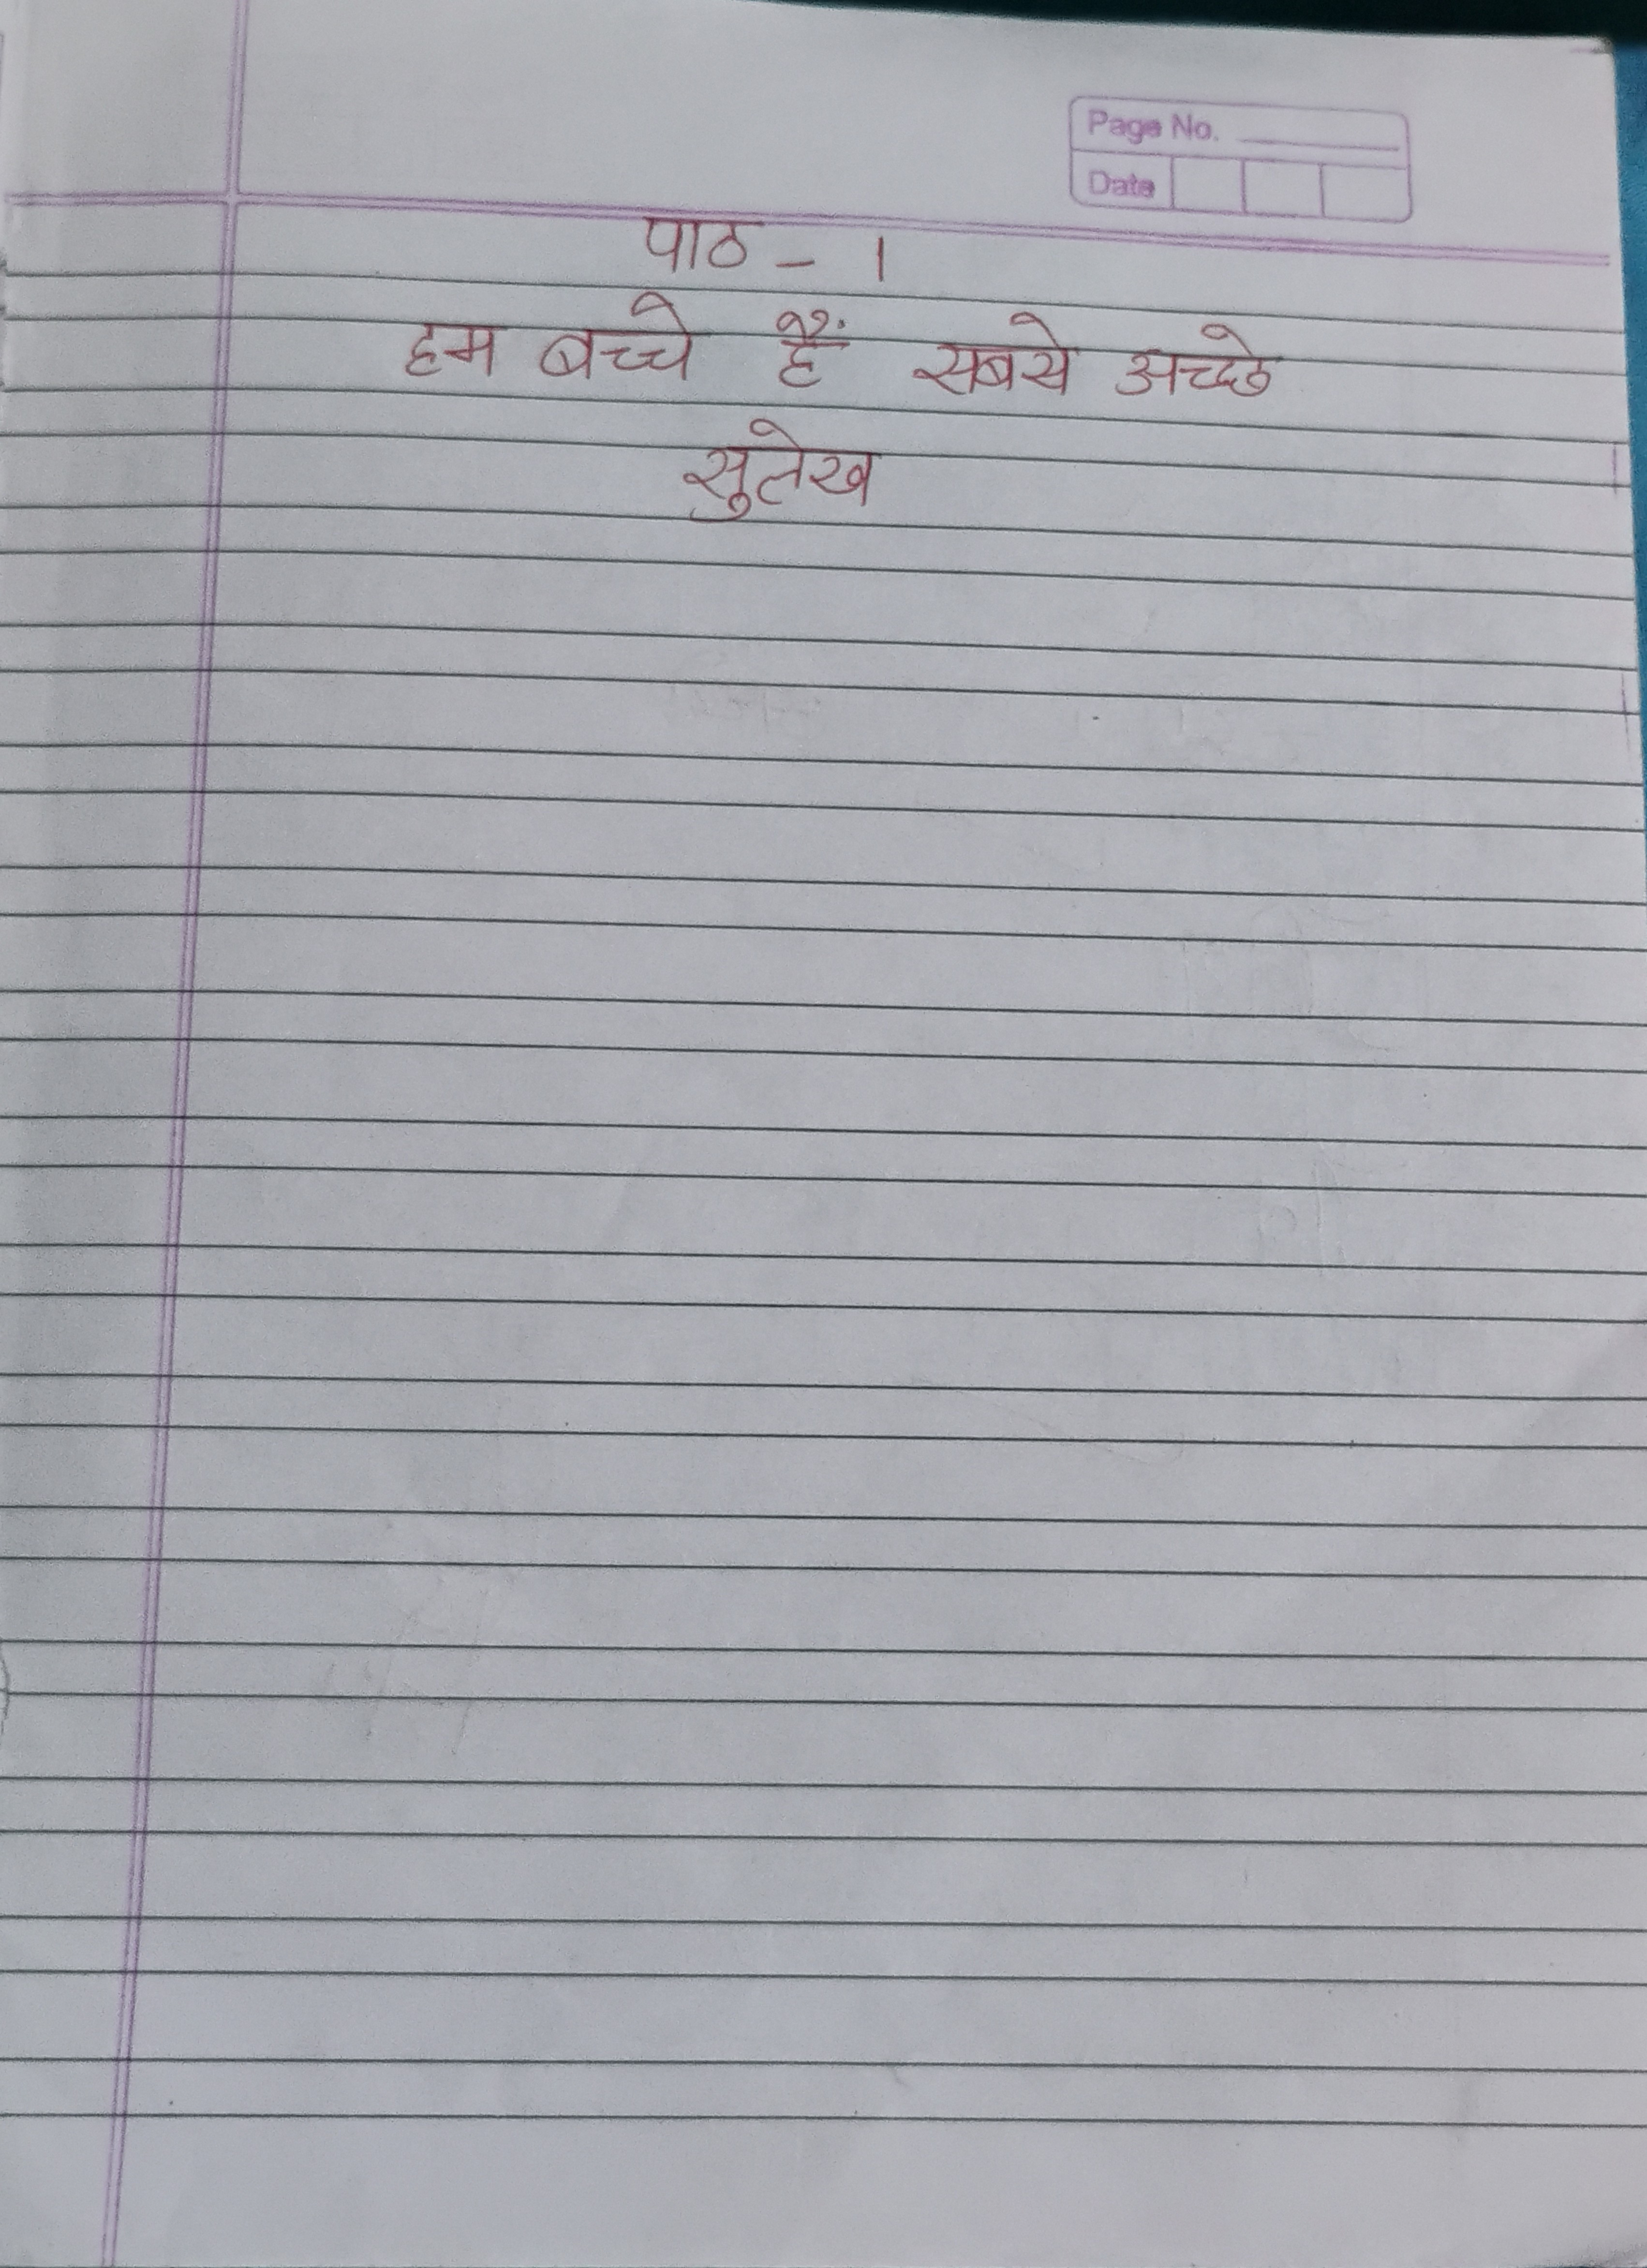 Page No.
Date
पाठ - 1
हम बच्चे हैं सबसे अच्छे
सुलेख